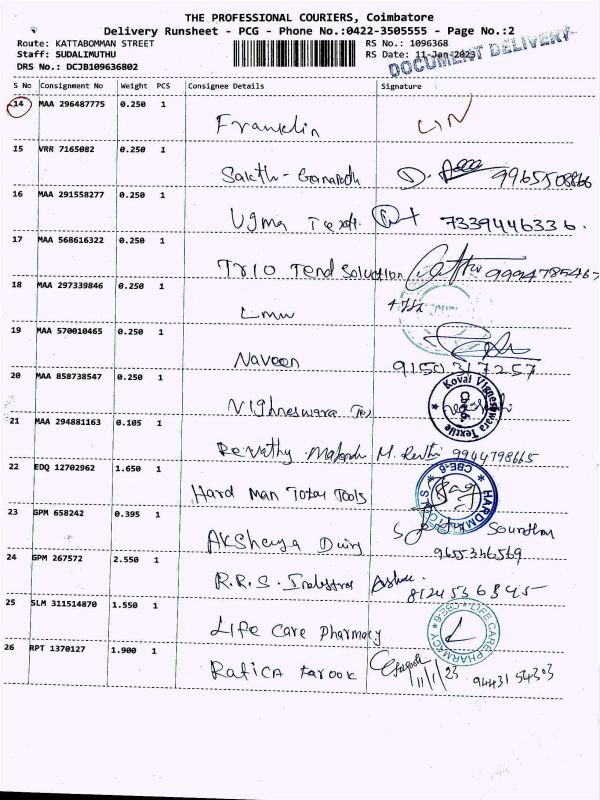 THE PROFESSIONAL COURIERS, Coimbatore
Delivery Runsheet - PCG - Phone No.:0422-3505555 - Page No.:2
Route: KATTABOMMAN STREET RS No.: 1096368
Staff: SUDALIMUTHU RS Date: 11-Jan-2023
DRS No.: DCJB109636802
DOCUMENT DELIVERY
S No Consignment No Weight PCS Consignee Details Signature
14 MAA 296487775 0.250 1
Franklin
15 VRR 7165082 0.250 1
9965508866
16 MAA 291558277 0.250 1
7339446336.
17 MAA 568616322 0.250 1
TRIO Tend Soluction
18 MAA 297339846 0.250 1
Lmw
19 MAA 570010465 0.250 1
Naveen
9150317257
20 MAA 858738547 0.250 1
Vighneswara Tex
Kovai Vigneshwara Textile
21 MAA 294881163 0.105 1
Revathy 9944798665
22 EDQ 12702962 1.650 1
Hard Man Total Tools
CBE-6
23 GPM 658242 0.395 1
Akshaya
9655346569
24 GPM 267572 2.550 1
R.R.S.
8124536845
25 SLM 311514870 1.550 1
Life Care Pharmacy
LIFE CARE PHARMACY CBE-6
26 RPT 1370127 1.900 1
Rafica Farook
11/1/23 9443154303